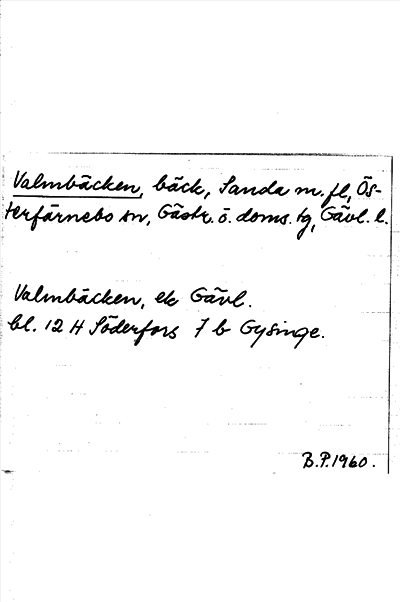 Valmbäcken, bäck, Sanda m. fl, Ös-
terfärnebo sn, Gästr. ö. doms. tg, Gävl. l.
Valmbäcken, ek Gävl.
bl. 12 H Söderfors 7 b Gysinge.
B.P. 1960.